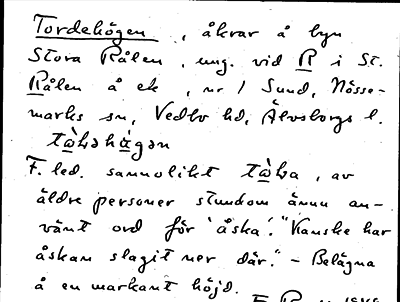 Tordehögen, åkrar å byn
Stora Rålen, ung. vid R i St.
Rålen å ek, nr 1 Sund, Nösse-
marks sn, Vedbo hd, Älvsborgs l.
F. led. sannolikt, av
äldre personer stundom ännu an-
vänt ord för 'åska'. "Kanske har
åskan slagit ner där." – Belägna
å en markant höjd.